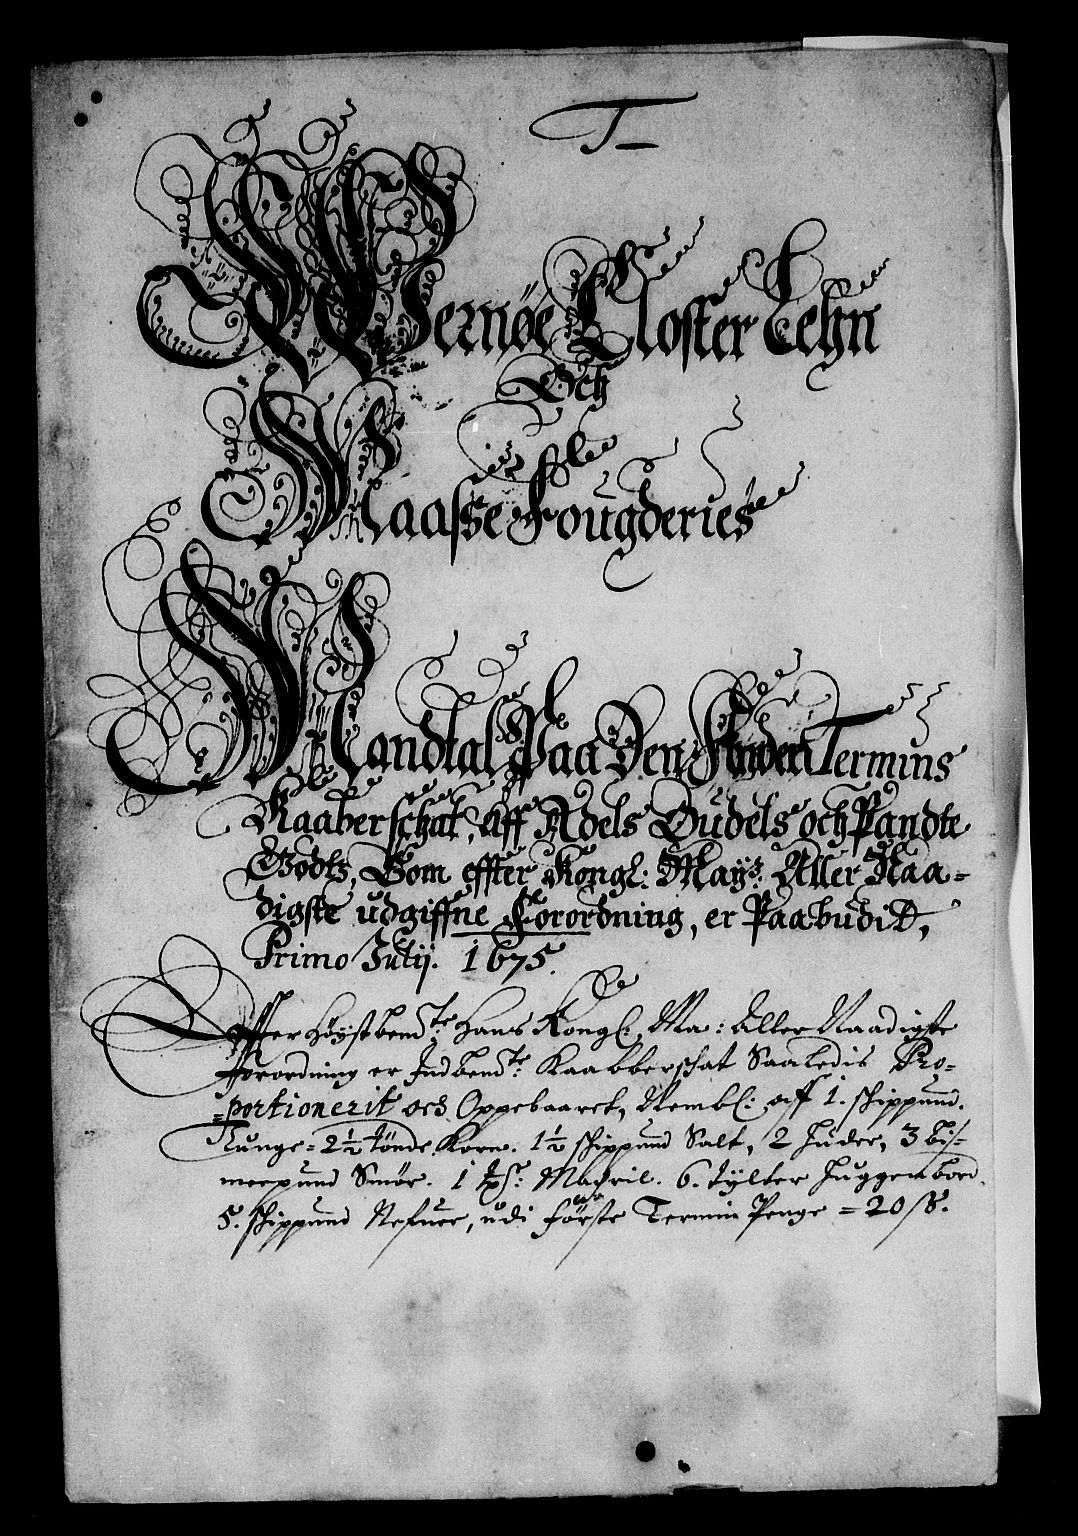 T
Wernøe Closter Lehn
Och
Maasse Fougderies
Mandtal Paa Den Anden Termins
Kaaberschat, Aff Adels Oudels och Pandte
Godts, Som effter Kongl: Mayz. Aller Naa=
digste udgiffne Forordning, er Paabudit,
Primo Julij. 1675.
Effter Høystbemte: Hans Kongl: Ma: Aller Naadigste
Forordning er Indbemte: Kaabberschat Saaledis Pro=
=portionerit och Oppebaaret, Nembl: aff 1. schippund.
Tunge = 2½ tønde Korn. 1½ schippund Salt, 2 Huder, 3 Bis=
merpund Smør. 1 Madril. 6. tylter Huggenbord
5. schippund Nefuer, udi første Termin Penge = 20 ß.